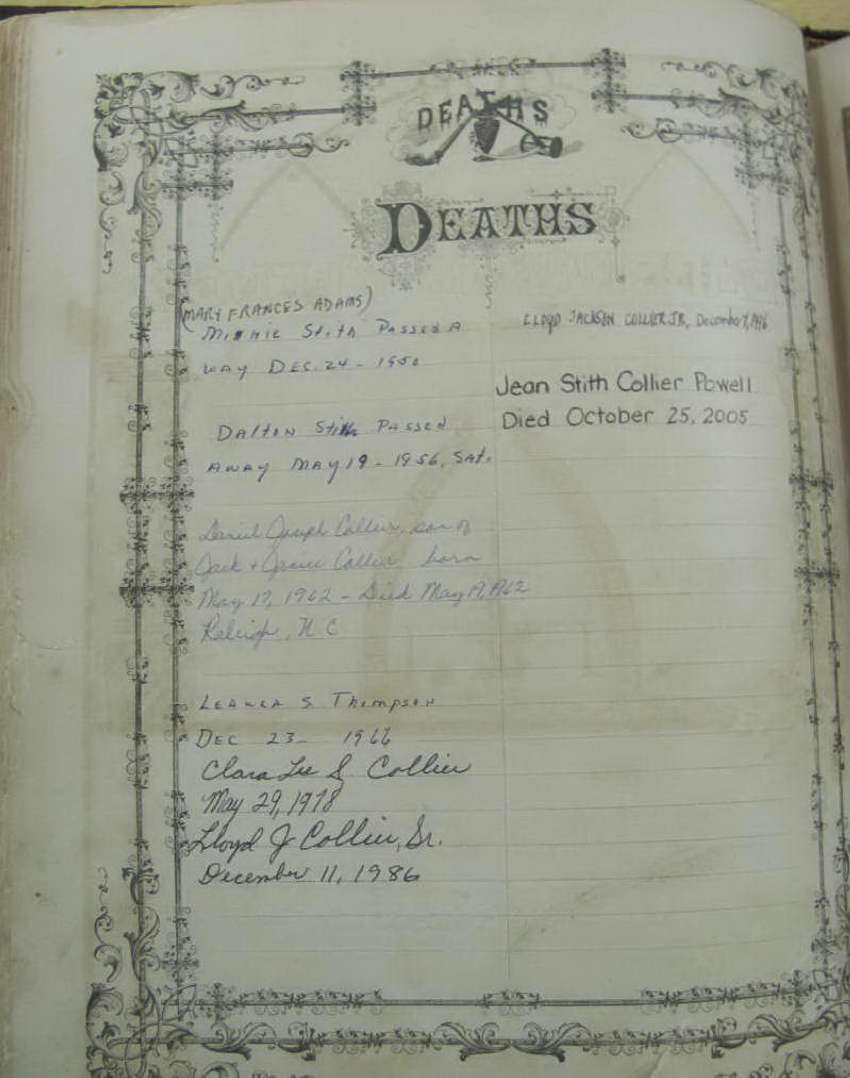 DEATHS
DEATHS
(MARY FRANCES ADAMS)
Minnie Stith Passed A
way Dec. 24 - 1950
Dalton Stith Passed
away may 19 - 1956, Sat.
Daniel Joseph Collier, son of
Jack + Collier born
May 17, 1962 - Died May 19, 1962
Raleigh, N C
S Thompson
Dec 23 - 1966
Clara Lee S Collier
May 29, 1978
Lloyd J Collier, Sr.
December 11, 1986
LLOYD JACKSON COLLIER JR, December 7,
Jean Stith Collier Powell
Died October 25, 2005